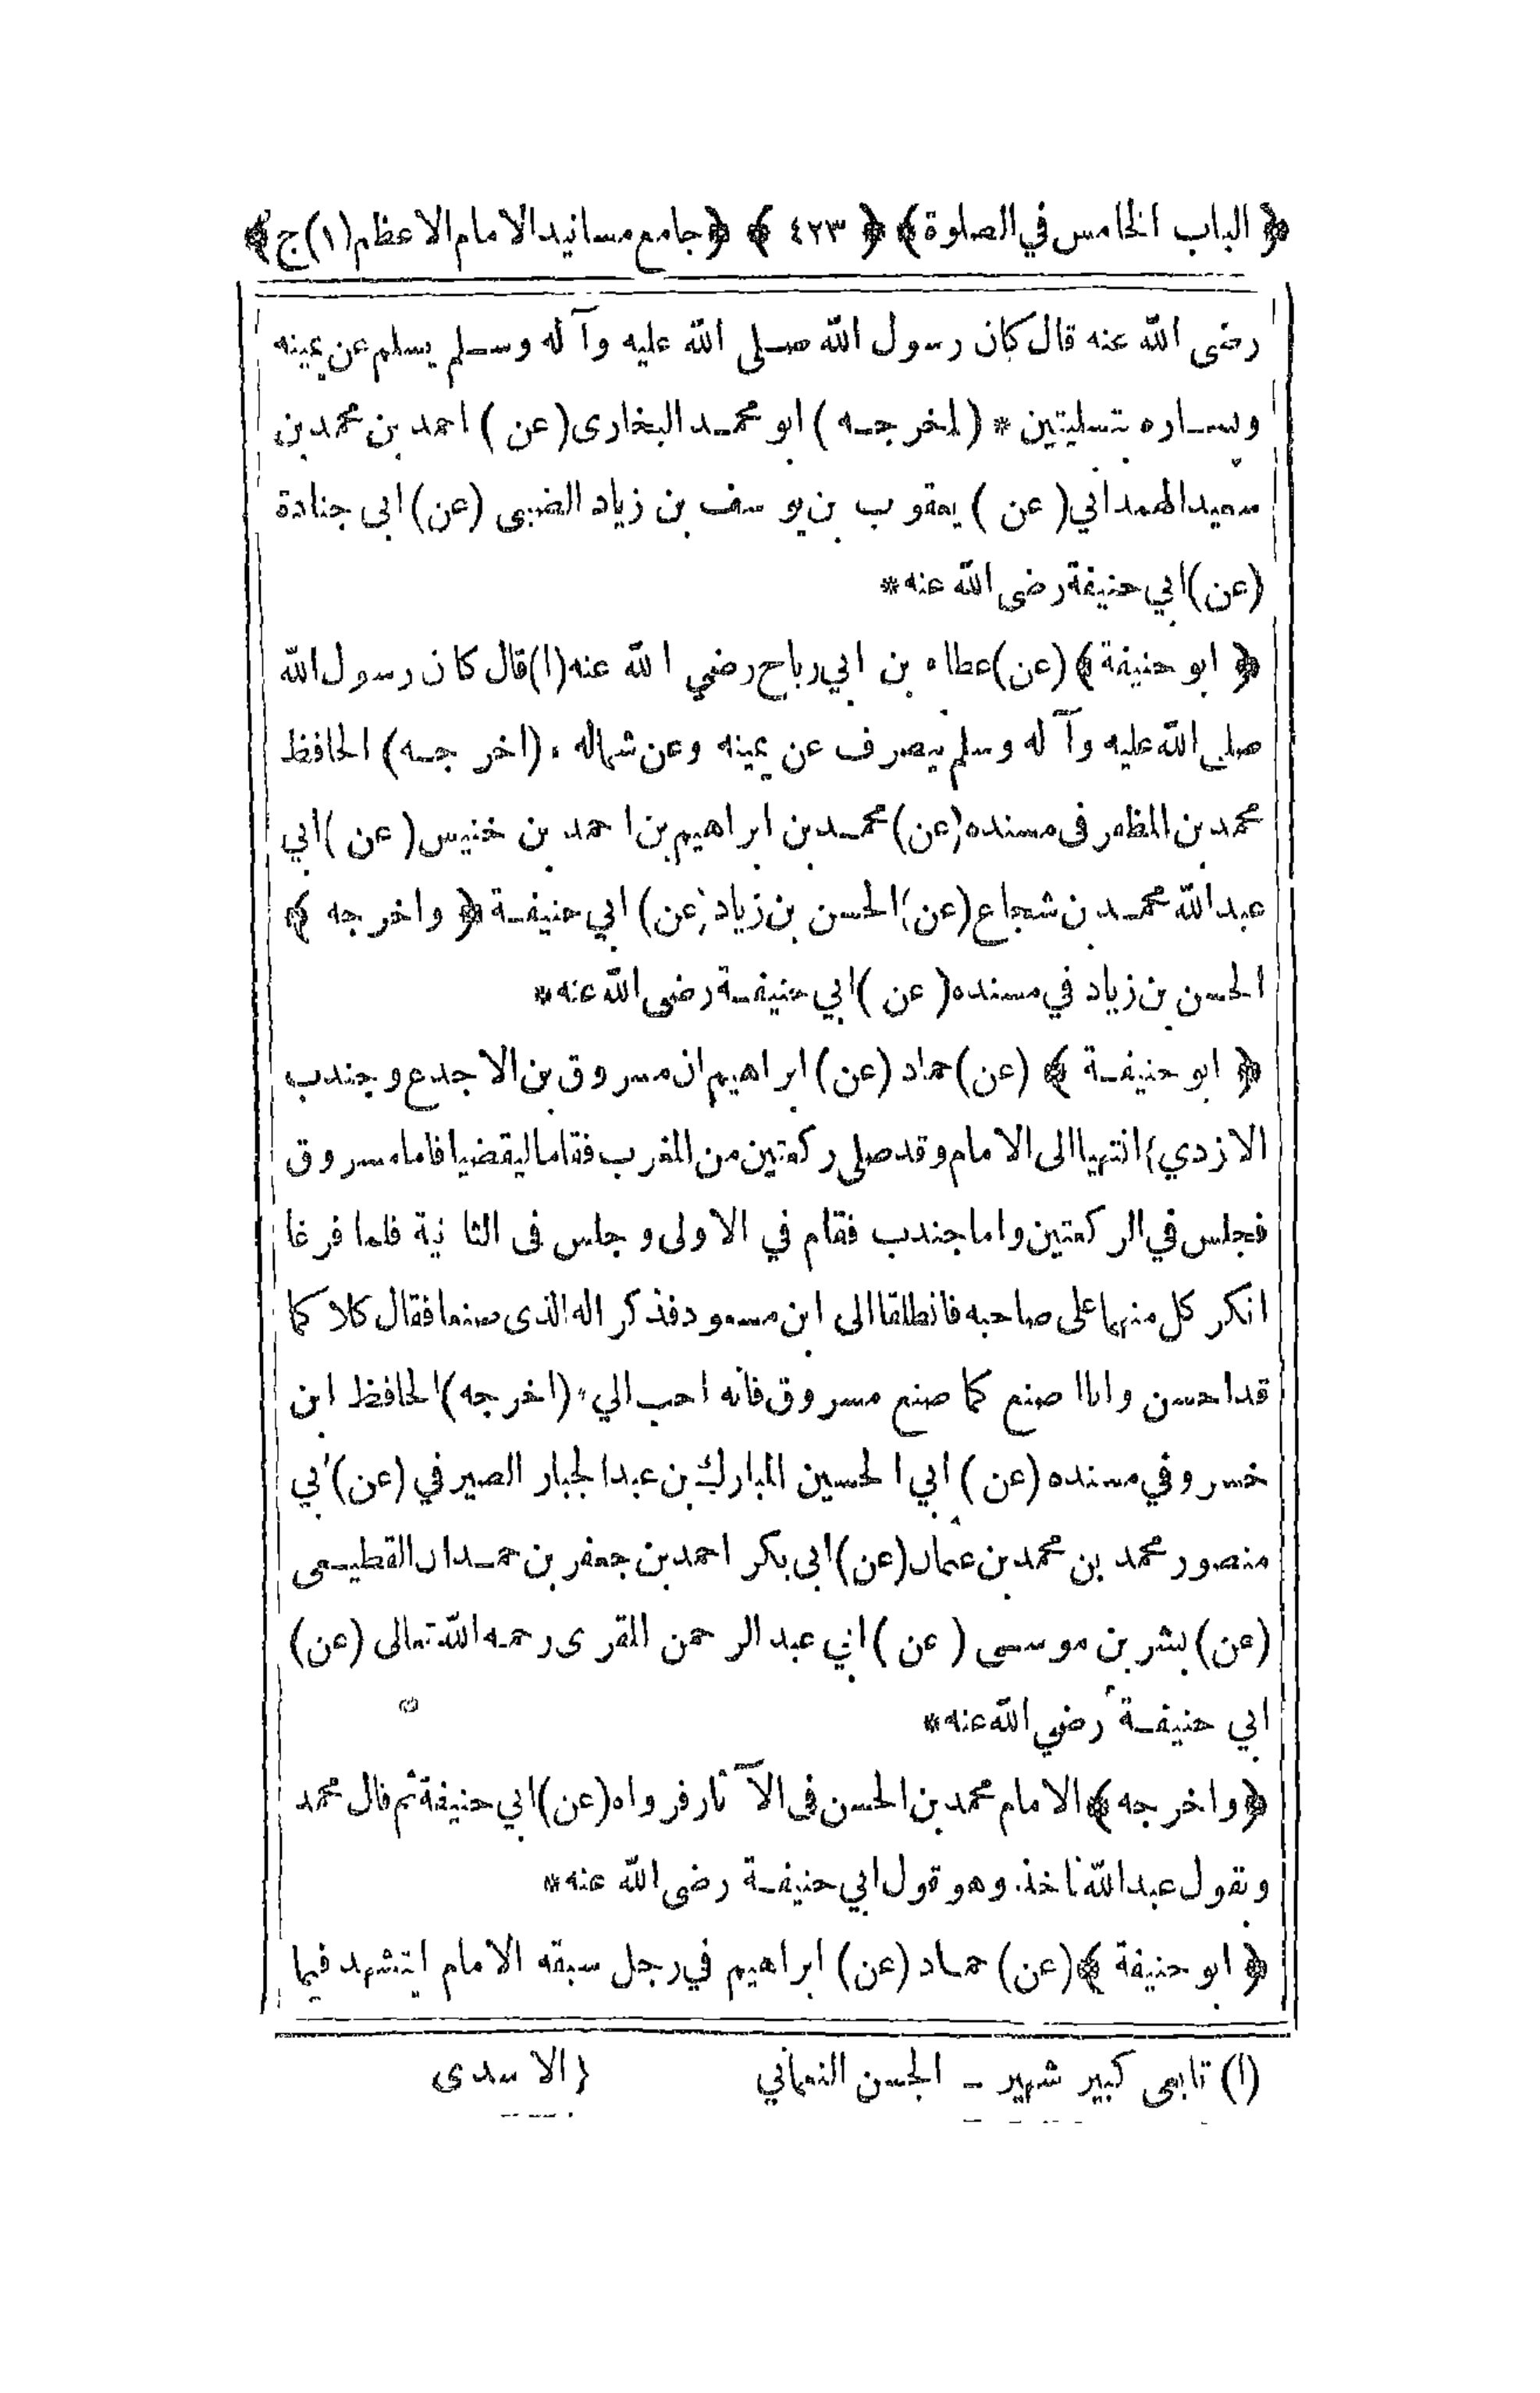 ﴿ الباب الخامس في الصلوة ﴾ ﴿ ٤٢٣ ﴾ ﴿ جامع مسانيد الامام الاعظم (١) ج ﴾
رضى الله عنه قال كان رسول الله صلى الله عليه وآله وسلم يسلم عن يمينه
ويساره بتسليتين * (اخرجه) ابو محمد البخارى (عن) احمد بن محمد بن
سعيد الهمداني (عن) يعقوب بن يوسف بن زياد الضبى (عن) ابى جنادة
(عن) ابي حنيفة رضى الله عنه *
﴿ ابو حنيفة ﴾ (عن) عطاء بن ابي رباح رضي الله عنه (١) قال كان رسول الله
صلى الله عليه وآله وسلم ينصرف عن يمينه وعن شماله . (اخرجه) الحافظ
محمد بن المظفر فى مسنده (عن) محمد بن ابراهيم بن احمد بن خنيس (عن) ابي
عبد الله محمد بن شجاع (عن) الحسن بن زياد (عن) ابي حنيفة ﴿ واخرجه ﴾
الحسن بن زياد في مسنده (عن) ابي حنيفة رضى الله عنه *
﴿ ابو حنيفة ﴾ (عن) حماد (عن) ابراهيم ان مسروق بن الاجدع وجندب
الازدي } انتهيا الى الامام وقد صلى ركعتين من المغرب فقاما ليقضيا فاما مسروق
فجلس في الركعتين واما جندب فقام في الاولى وجلس فى الثانية فلما فرغا
انكر كل منهما على صاحبه فانطلقا الى ابن مسعود فذكرا له الذى صنعا فقال كلا كما
قد احسن وانا اصنع كما صنع مسروق فانه احب الي * (اخرجه) الحافظ ابن
خسرو في مسنده (عن) ابي الحسين المبارك بن عبد الجبار الصيرفي (عن) ابي
منصور محمد بن محمد بن عثمان (عن) ابى بكر احمد بن جعفر بن حمدان القطيعى
(عن) بشر بن موسى (عن) ابي عبد الرحمن المقرى رحمه الله تعالى (عن)
ابي حنيفة رضي الله عنه *
﴿ واخرجه ﴾ الامام محمد بن الحسن فى الآثار فرواه (عن) ابي حنيفة ثم قال محمد
وبقول عبد الله ناخذ . وهو قول ابي حنيفة رضى الله عنه *
﴿ ابو حنيفة ﴾ (عن) حماد (عن) ابراهيم في رجل سبقه الامام ايتشهد فيما
(١) تابعى كبير شهير ـ الحسن النعماني } الاسدى